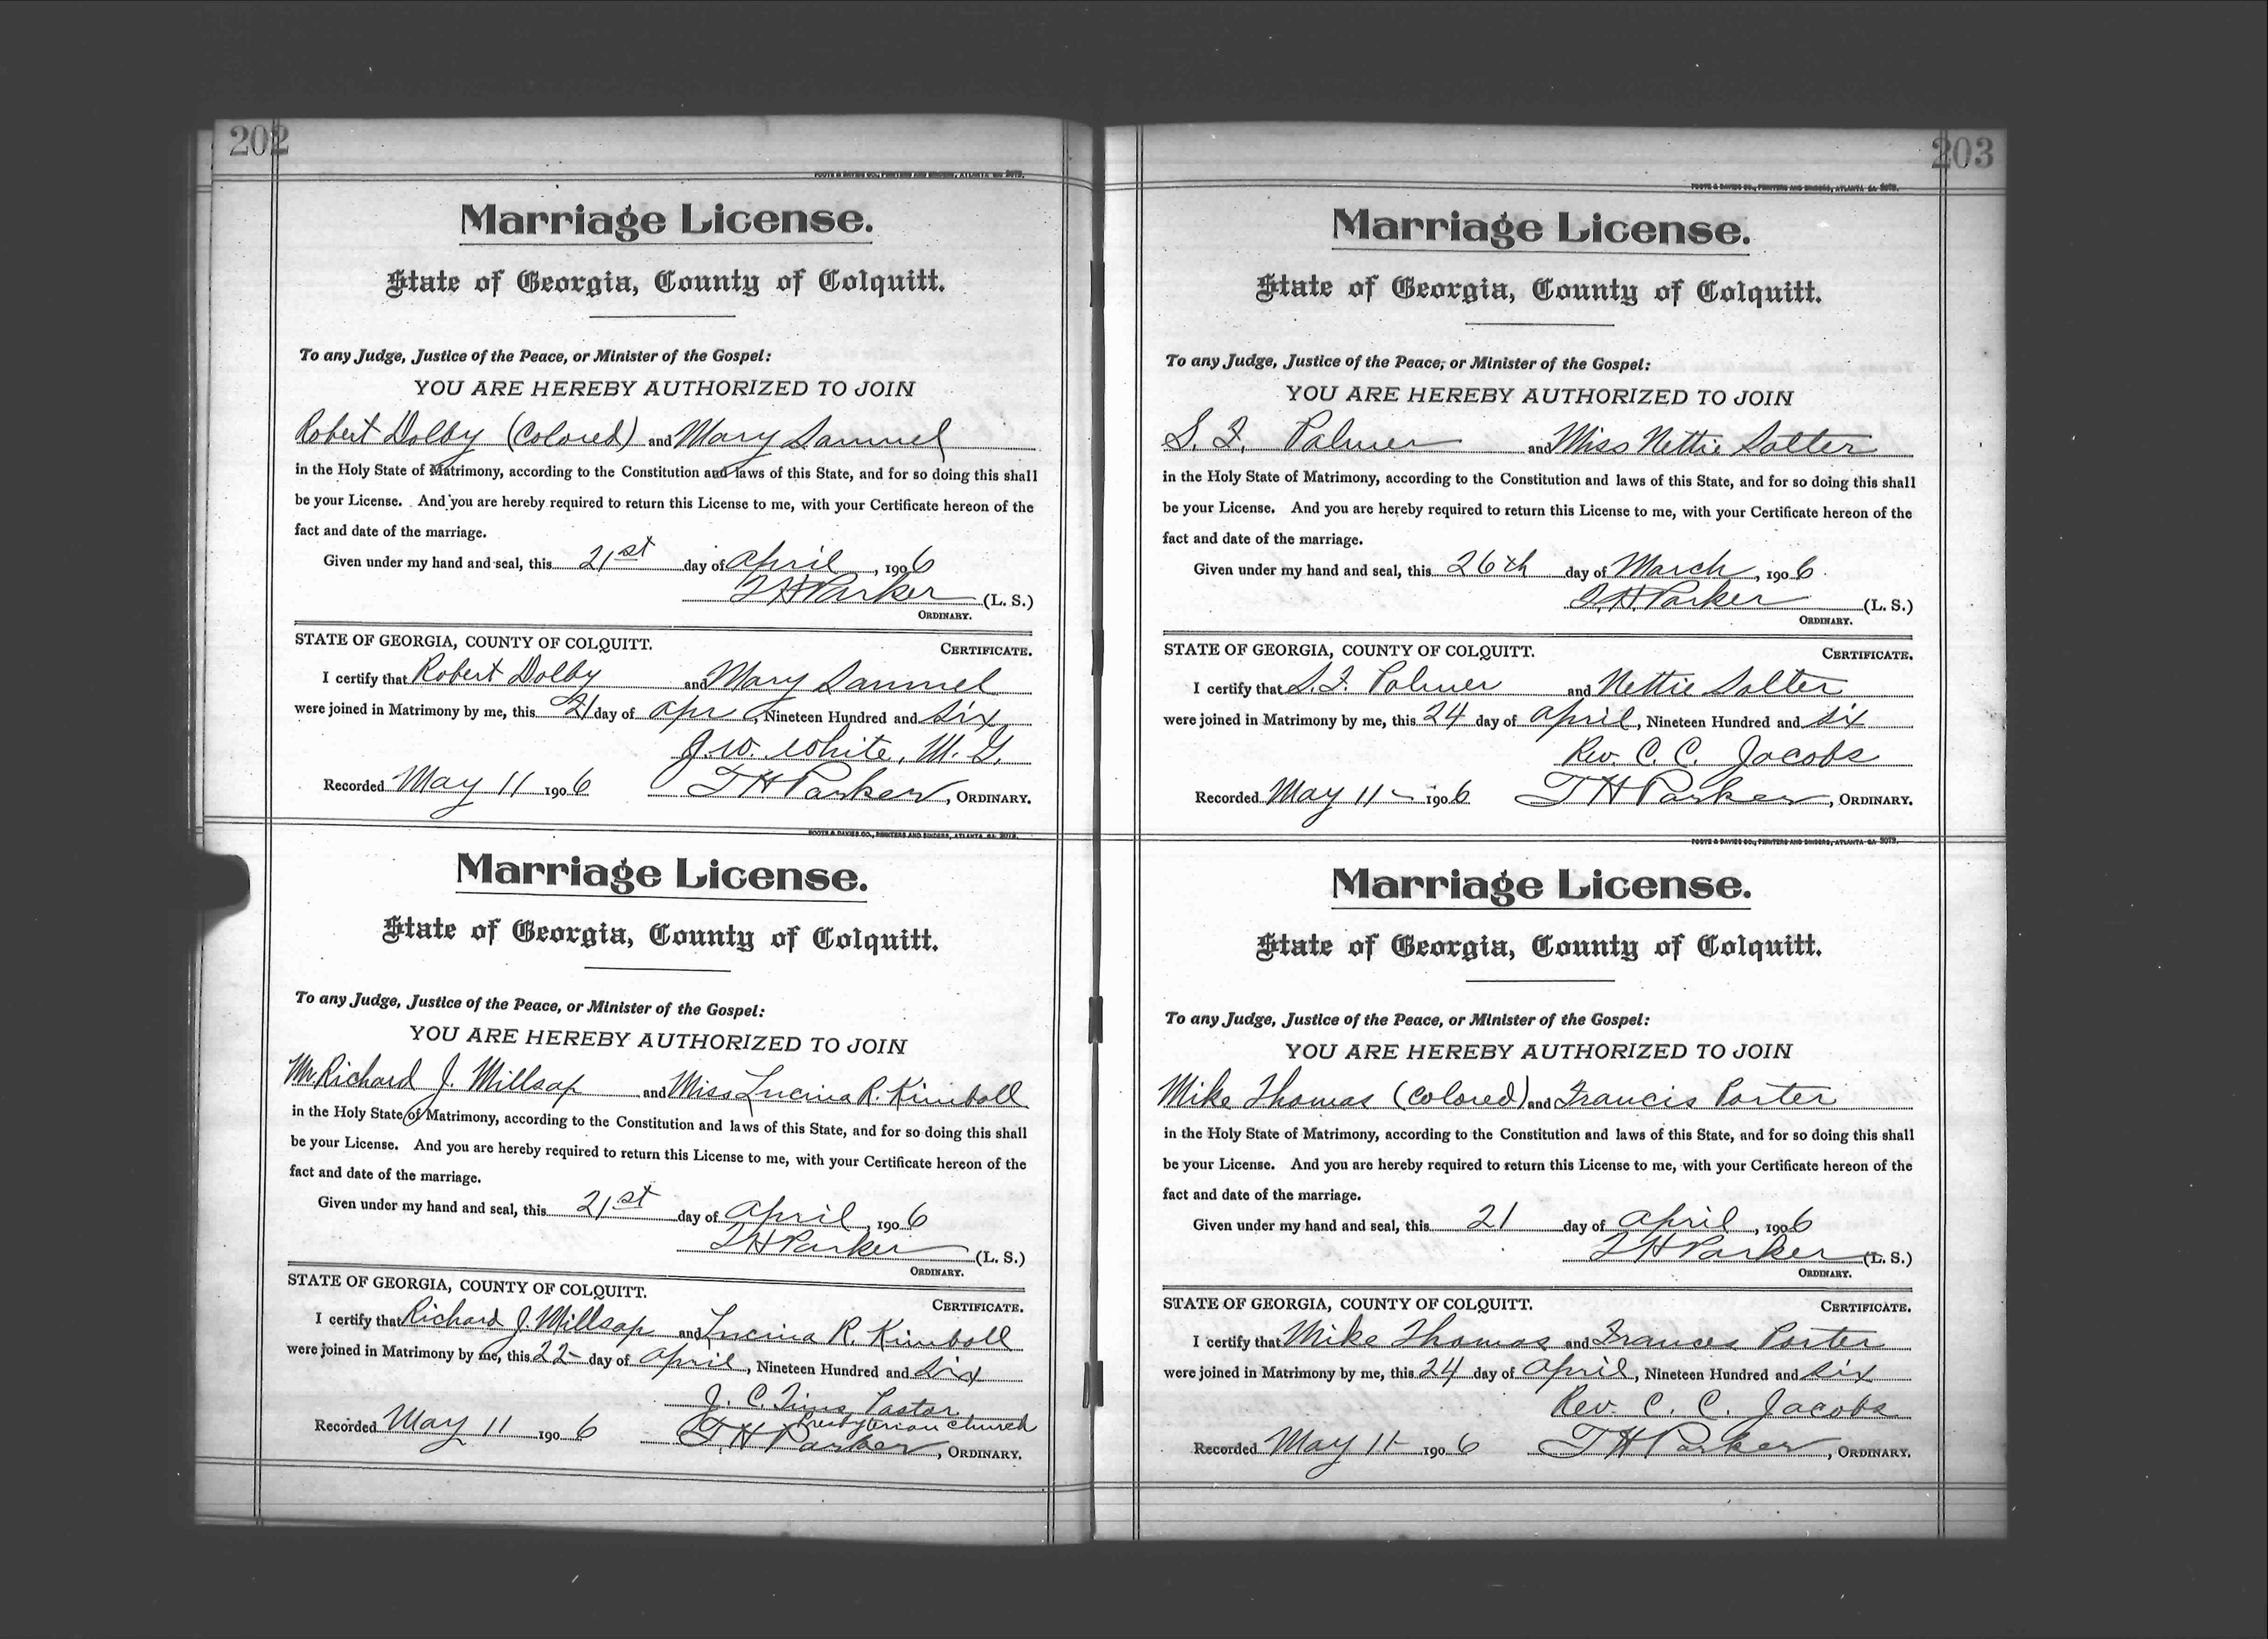 202
FOOTE & DAVIES CO., PRINTERS AND BINDERS, ATLANTA GA 3072.
Marriage License.
State of Georgia, County of Colquitt.
To any Judge, Justice of the Peace, or Minister of the Gospel:
YOU ARE HEREBY AUTHORIZED TO JOIN
Robert Dolby (Colored) and Mary Samuel
in the Holy State of Matrimony, according to the Constitution and laws of this State, and for so doing this shall
be your License. And you are hereby required to return this License to me, with your Certificate hereon of the
fact and date of the marriage.
Given under my hand and seal, this 21st day of April, 1906
T H Parker (L. S.)
ORDINARY.
STATE OF GEORGIA, COUNTY OF COLQUITT.
CERTIFICATE.
I certify that Robert Dolby and Mary Sammel
were joined in Matrimony by me, this 21 day of Apr, Nineteen Hundred and Six
J. W. White, M. G.
Recorded May 11 1906 T H Parker, ORDINARY.
FOOTE & DAVIES CO., PRINTERS AND BINDERS, ATLANTA GA. 3072.
Marriage License.
State of Georgia, County of Colquitt.
To any Judge, Justice of the Peace, or Minister of the Gospel:
YOU ARE HEREBY AUTHORIZED TO JOIN
Mr Richard J. Millsap and Miss Lucina R. Kimball
in the Holy State of Matrimony, according to the Constitution and laws of this State, and for so doing this shall
be your License. And you are hereby required to return this License to me, with your Certificate hereon of the
fact and date of the marriage.
Given under my hand and seal, this 21st day of April, 1906
T H Parker (L. S.)
ORDINARY.
STATE OF GEORGIA, COUNTY OF COLQUITT.
CERTIFICATE.
I certify that Richard J. Millsap and Lucina R. Kimball
were joined in Matrimony by me, this 22- day of April, Nineteen Hundred and Six
J. C. Tims Pastor
Presbyterian Church
Recorded May 11 1906 T H Parker, ORDINARY.
203
FOOTE & DAVIES CO., PRINTERS AND BINDERS, ATLANTA GA. 3072.
Marriage License.
State of Georgia, County of Colquitt.
To any Judge, Justice of the Peace, or Minister of the Gospel:
YOU ARE HEREBY AUTHORIZED TO JOIN
S. I. Palmer and Miss Nettie Solter
in the Holy State of Matrimony, according to the Constitution and laws of this State, and for so doing this shall
be your License. And you are hereby required to return this License to me, with your Certificate hereon of the
fact and date of the marriage.
Given under my hand and seal, this 26th day of March, 1906.
T. H Parker (L. S.)
ORDINARY.
STATE OF GEORGIA, COUNTY OF COLQUITT.
CERTIFICATE.
I certify that S. I. Palmer and Nettie Solter
were joined in Matrimony by me, this 24 day of April, Nineteen Hundred and Six
Rev. C. C. Jacobs
Recorded May 11- 1906 T H Parker, ORDINARY.
FOOTE & DAVIES CO., PRINTERS AND BINDERS, ATLANTA GA 3072.
Marriage License.
State of Georgia, County of Colquitt.
To any Judge, Justice of the Peace, or Minister of the Gospel:
YOU ARE HEREBY AUTHORIZED TO JOIN
Mike Thomas (Colored) and Francis Porter
in the Holy State of Matrimony, according to the Constitution and laws of this State, and for so doing this shall
be your License. And you are hereby required to return this License to me, with your Certificate hereon of the
fact and date of the marriage.
Given under my hand and seal, this 21 day of April, 1906
T H Parker (L. S.)
ORDINARY.
STATE OF GEORGIA, COUNTY OF COLQUITT.
CERTIFICATE.
I certify that Mike Thomas and Frances Porter
were joined in Matrimony by me, this 24 day of April, Nineteen Hundred and Six
Rev. C. C. Jacobs
Recorded May 11- 1906 T H Parker, ORDINARY.